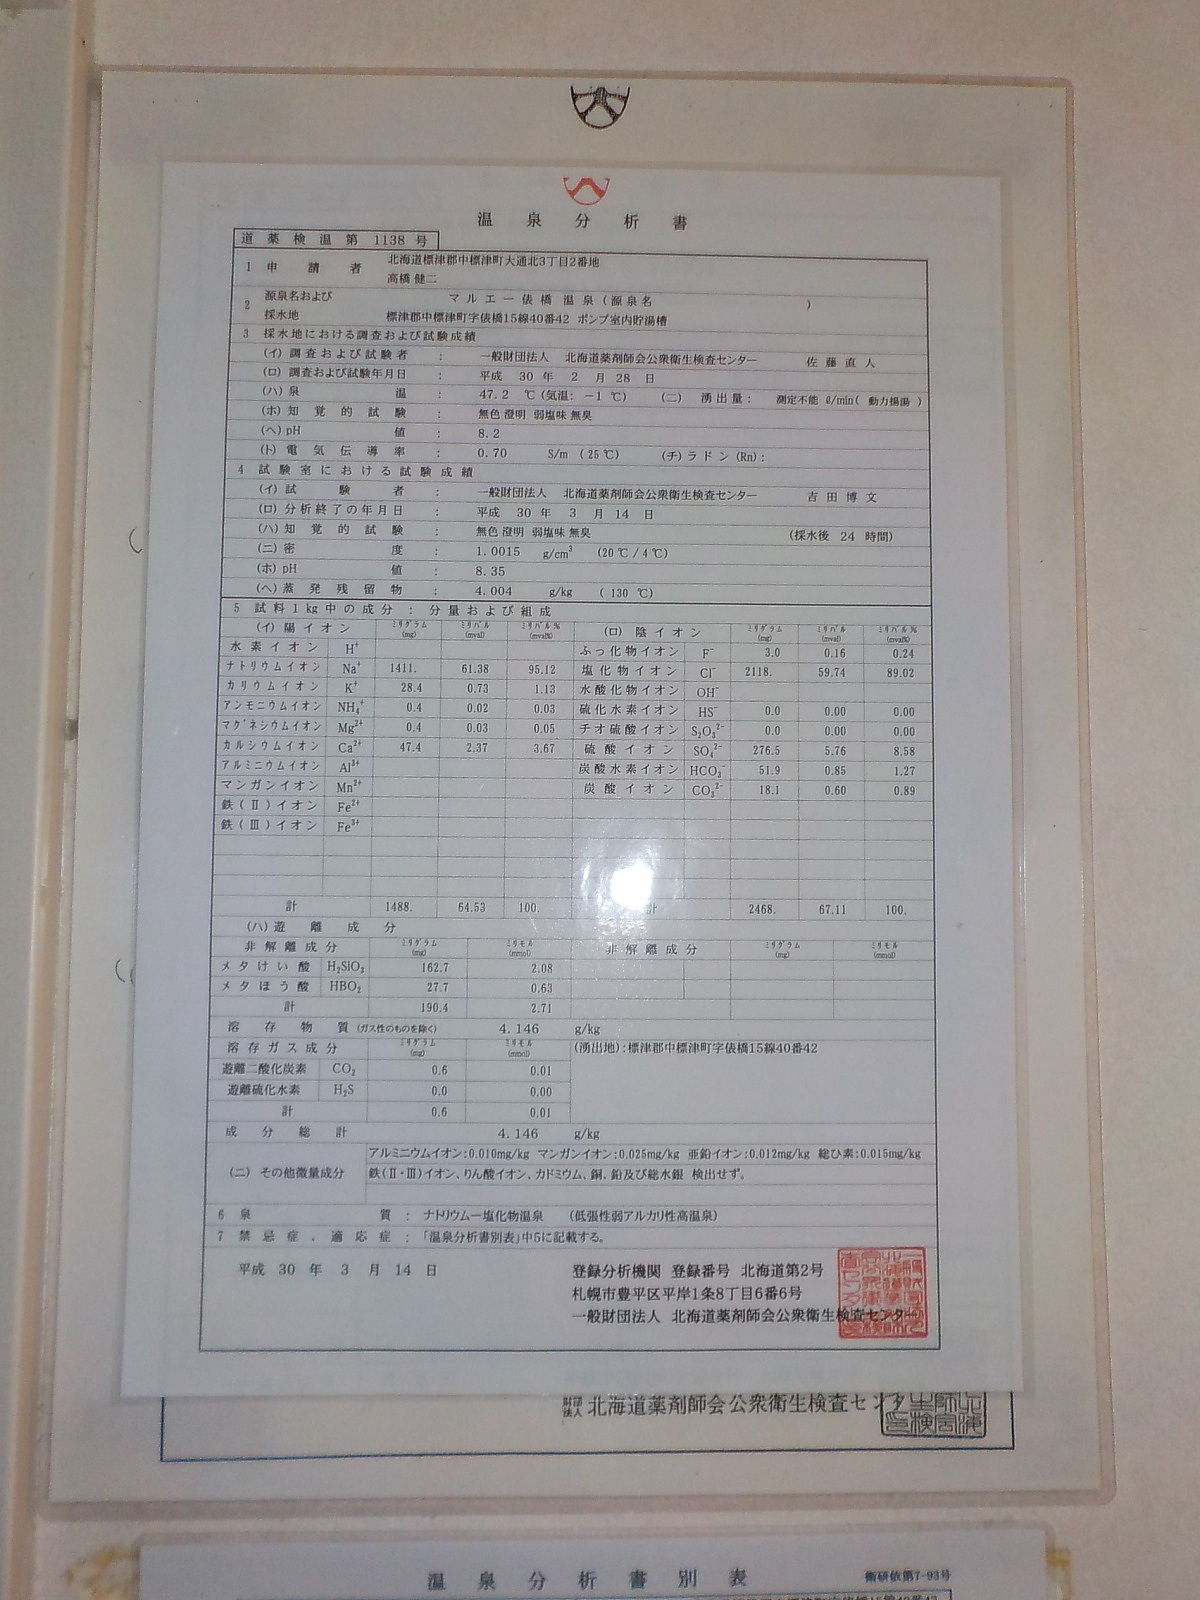 温泉分析書
道薬検温第 1138 号
1 申請者 北海道標津郡中標津町大通北3丁目2番地
高橋 健二
2 源泉名および マルエー俵橋温泉(源泉名 )
採水地 標津郡中標津町字俵橋15線40番42 ポンプ室内貯湯槽
3 採水地における調査および試験成績
(イ)調査および試験者 : 一般財団法人 北海道薬剤師会公衆衛生検査センター 佐藤直人
(ロ)調査および試験年月日 : 平成 30 年 2 月 28 日
(ハ)泉温 : 47.2 ℃(気温: -1 ℃) (ニ) 湧出量: 測定不能 ℓ/min( 動力揚湯 )
(ホ)知覚的試験 : 無色 澄明 弱塩味 無臭
(ヘ)pH値 : 8.2
(ト)電気伝導率 : 0.70 S/m (25℃) (チ)ラドン(Rn):
4 試験室における試験成績
(イ)試験者 : 一般財団法人 北海道薬剤師会公衆衛生検査センター 吉田博文
(ロ)分析終了の年月日 : 平成 30 年 3 月 14 日
(ハ)知覚的試験 : 無色 澄明 弱塩味 無臭 (採水後 24 時間)
(ニ)密度 : 1.0015 g/cm³ (20℃/4℃)
(ホ)pH値 : 8.35
(ヘ)蒸発残留物 : 4.004 g/kg (130℃)
5 試料1kg中の成分:分量および組成
(イ)陽イオン ミリグラム(mg) ミリバル(mval) ミリバル%(mval%) (ロ)陰イオン ミリグラム(mg) ミリバル(mval) ミリバル%(mval%)
水素イオン H⁺ ふっ化物イオン F⁻ 3.0 0.16 0.24
ナトリウムイオン Na⁺ 1411. 61.38 95.12 塩化物イオン Cl⁻ 2118. 59.74 89.02
カリウムイオン K⁺ 28.4 0.73 1.13 水酸化物イオン OH⁻
アンモニウムイオン NH₄⁺ 0.4 0.02 0.03 硫化水素イオン HS⁻ 0.0 0.00 0.00
マグネシウムイオン Mg²⁺ 0.4 0.03 0.05 チオ硫酸イオン S₂O₃²⁻ 0.0 0.00 0.00
カルシウムイオン Ca²⁺ 47.4 2.37 3.67 硫酸イオン SO₄²⁻ 276.5 5.76 8.58
アルミニウムイオン Al³⁺ 炭酸水素イオン HCO₃⁻ 51.9 0.85 1.27
マンガンイオン Mn²⁺ 炭酸イオン CO₃²⁻ 18.1 0.60 0.89
鉄(Ⅱ)イオン Fe²⁺
鉄(Ⅲ)イオン Fe³⁺
計 1488. 64.53 100. 計 2468. 67.11 100.
(ハ)遊離成分
非解離成分 ミリグラム(mg) ミリモル(mmol) 非解離成分 ミリグラム(mg) ミリモル(mmol)
メタけい酸 H₂SiO₃ 162.7 2.08
メタほう酸 HBO₂ 27.7 0.63
計 190.4 2.71
溶存物質(ガス性のものを除く) 4.146 g/kg
溶存ガス成分 ミリグラム(mg) ミリモル(mmol) (湧出地):標津郡中標津町字俵橋15線40番42
遊離二酸化炭素 CO₂ 0.6 0.01
遊離硫化水素 H₂S 0.0 0.00
計 0.6 0.01
成分総計 4.146 g/kg
(ニ)その他微量成分 アルミニウムイオン:0.010mg/kg マンガンイオン:0.025mg/kg 亜鉛イオン:0.012mg/kg 総ひ素:0.015mg/kg
鉄(Ⅱ・Ⅲ)イオン、りん酸イオン、カドミウム、銅、鉛及び総水銀 検出せず。
6 泉質 : ナトリウム―塩化物温泉 (低張性弱アルカリ性高温泉)
7 禁忌症、適応症 : 「温泉分析書別表」中5に記載する。
平成 30 年 3 月 14 日
登録分析機関 登録番号 北海道第2号
札幌市豊平区平岸1条8丁目6番6号
一般財団法人 北海道薬剤師会公衆衛生検査センター
財団法人 北海道薬剤師会公衆衛生検査センタ
温泉分析書別表 衛研依第7-93号